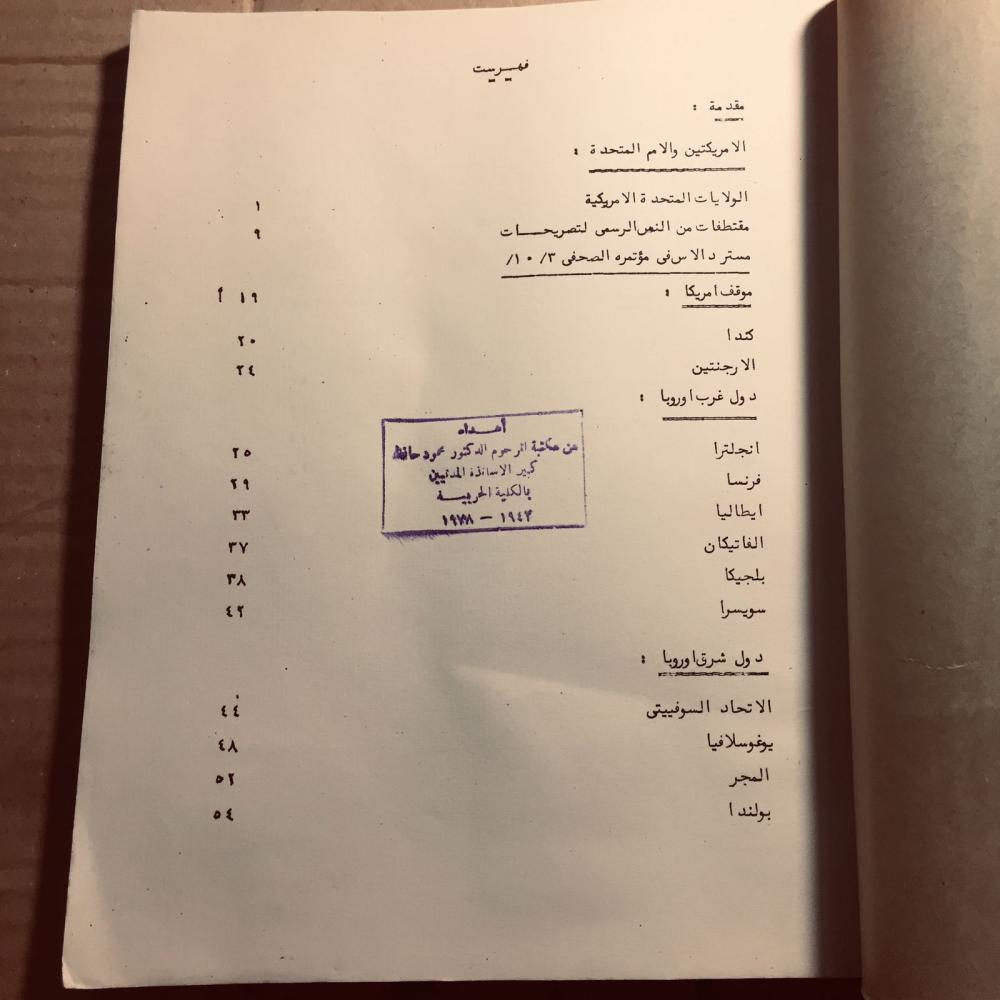 فهيرست
مقدمة :
الامريكتين والامم المتحدة :
الولايات المتحدة الامريكية ١
مقتطفات من النص الرسمى لتصريحــات ٩
مستر دالاس فى مؤتمره الصحفى ٣/ ١٠/
موقف امريكا : ١٩ أ
كندا ٢٠
الارجنتين ٢٤
دول غرب اوروبا :
انجلترا ٢٥
فرنسا ٢٩
ايطاليا ٣٣
الفاتيكان ٣٧
بلجيكا ٣٨
سويسرا ٤٢
دول شرق اوروبا :
الاتحاد السوفييتى ٤٤
يوغوسلافيا ٤٨
المجر ٥٢
بولندا ٥٤
أهــداء
من مكتبة المرحوم الدكتور محمود حافظ
كبير الاساتذه المدنيين
بالكلية الحربيــة
١٩٤٣ – ١٩٧٨